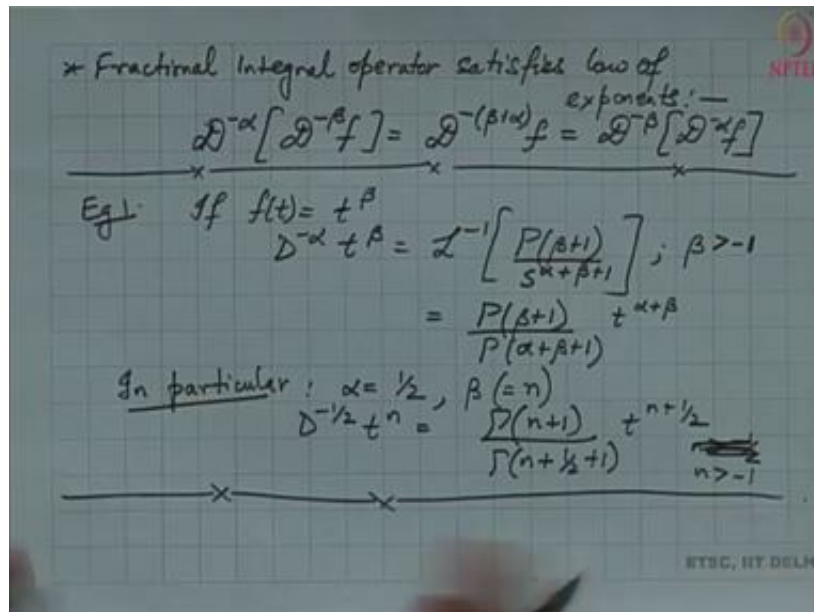 * Fractional Integral operator satisfies law of
exponents:—
𝒟^{-α}[𝒟^{-β}f] = 𝒟^{-(β+α)}f = 𝒟^{-β}[𝒟^{-α}f]
Eg 1. If f(t) = t^β
D^{-α} t^β = ℒ^{-1}[Γ(β+1) / s^{α+β+1}] ; β > -1
= Γ(β+1) / Γ(α+β+1) t^{α+β}
In particular : α = 1/2, β (= n)
D^{-1/2} t^n = Γ(n+1) / Γ(n + 1/2 + 1) t^{n+1/2}
n > -1
NPTEL
ETSC, IIT DELH